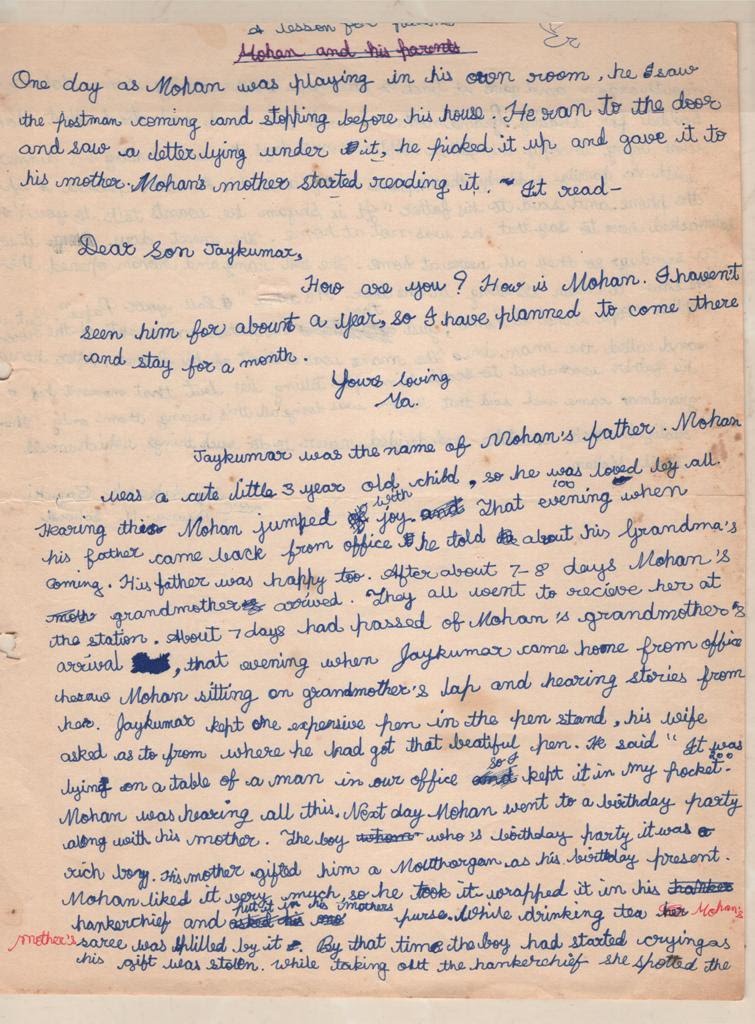 A lesson for parents
Mohan and his parents
One day as Mohan was playing in his own room, he saw
the postman coming and stopping before his house. He ran to the door
and saw a letter lying under it, he picked it up and gave it to
his mother. Mohan's mother started reading it. It read-
Dear Son Jaykumar,
How are you? How is Mohan. I haven't
seen him for about a year, so I have planned to come there
and stay for a month.
Yours loving
Ma.
Jaykumar was the name of Mohan's father. Mohan
was a cute little 3 year old child, so he was loved by all.
Hearing this Mohan jumped with joy. That evening when
his father came back from office he told about his Grandma's
coming. His father was happy too. After about 7-8 days Mohan's
grandmother arrived. They all went to recieve her at
the station. About 7 days had passed of Mohan's grandmother's
arrival, that evening when Jaykumar came home from office
he saw Mohan sitting on grandmother's lap and hearing stories from
her. Jaykumar kept one expensive pen in the pen stand, his wife
asked as to from where he had got that beatiful pen. He said "It was
lying on a table of a man in our office so I kept it in my pocket.
Mohan was hearing all this. Next day Mohan went to a birthday party
along with his mother. The boy who's birthday party it was a
rich boy. His mother gifted him a Mouthorgan as his birthday present.
Mohan liked it very much, so he took it wrapped it in his
hankerchief and put it in his mothers purse. While drinking tea Mohan's
mother's saree was spilled by it. By that time the boy had started crying as
his gift was stolen. While taking out the hankerchief she spotted the